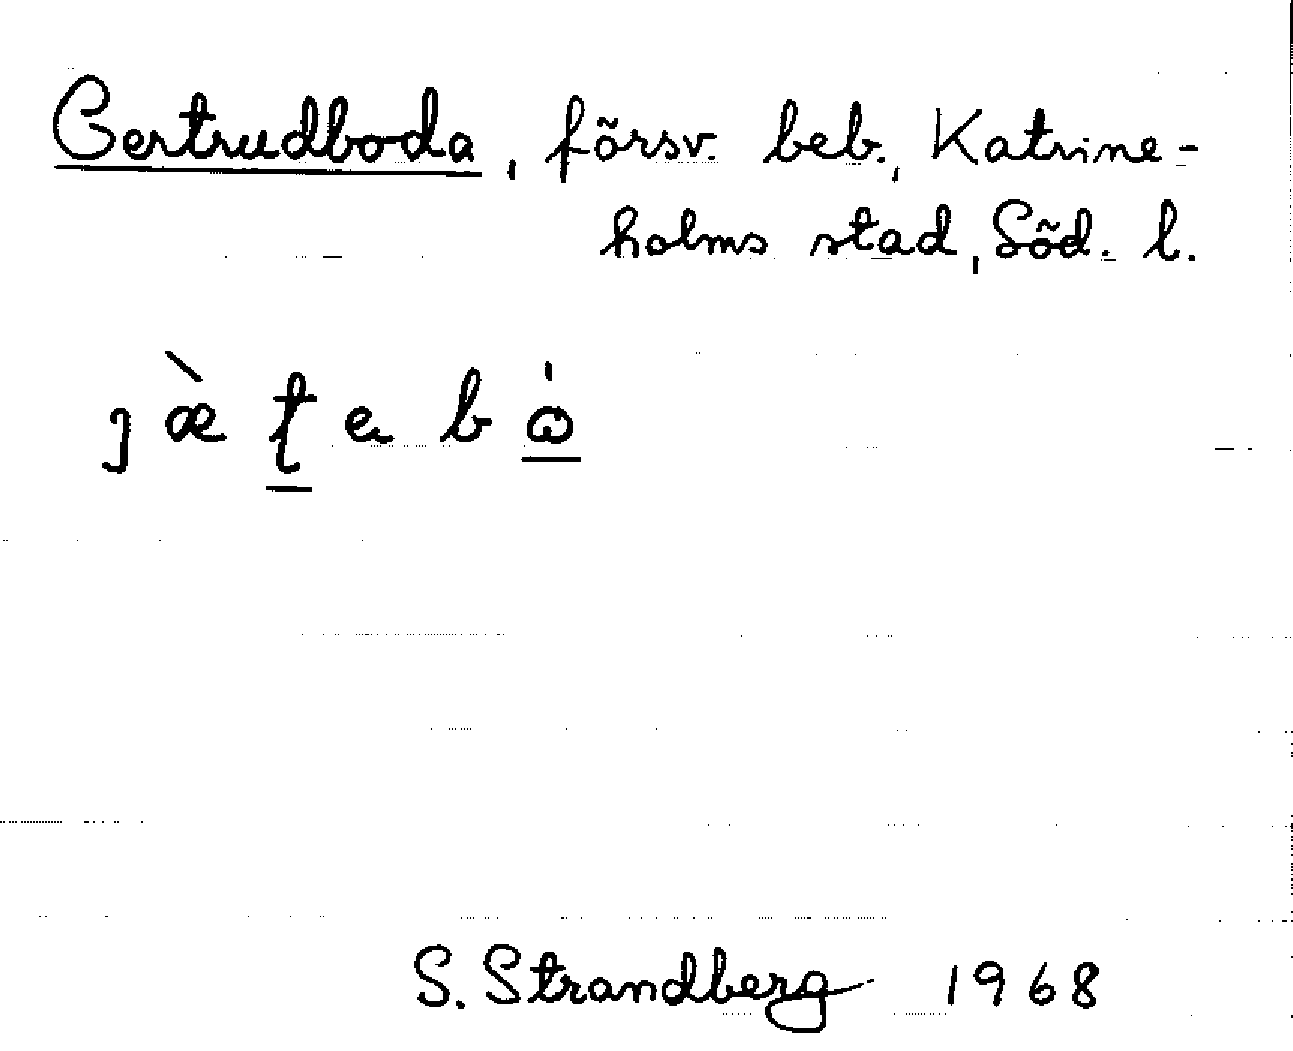 Gertrudboda, försv. beb., Katrine-
holms stad, Söd. l.
j æ̀ ʈ e b ɷ̇
S. Strandberg 1968